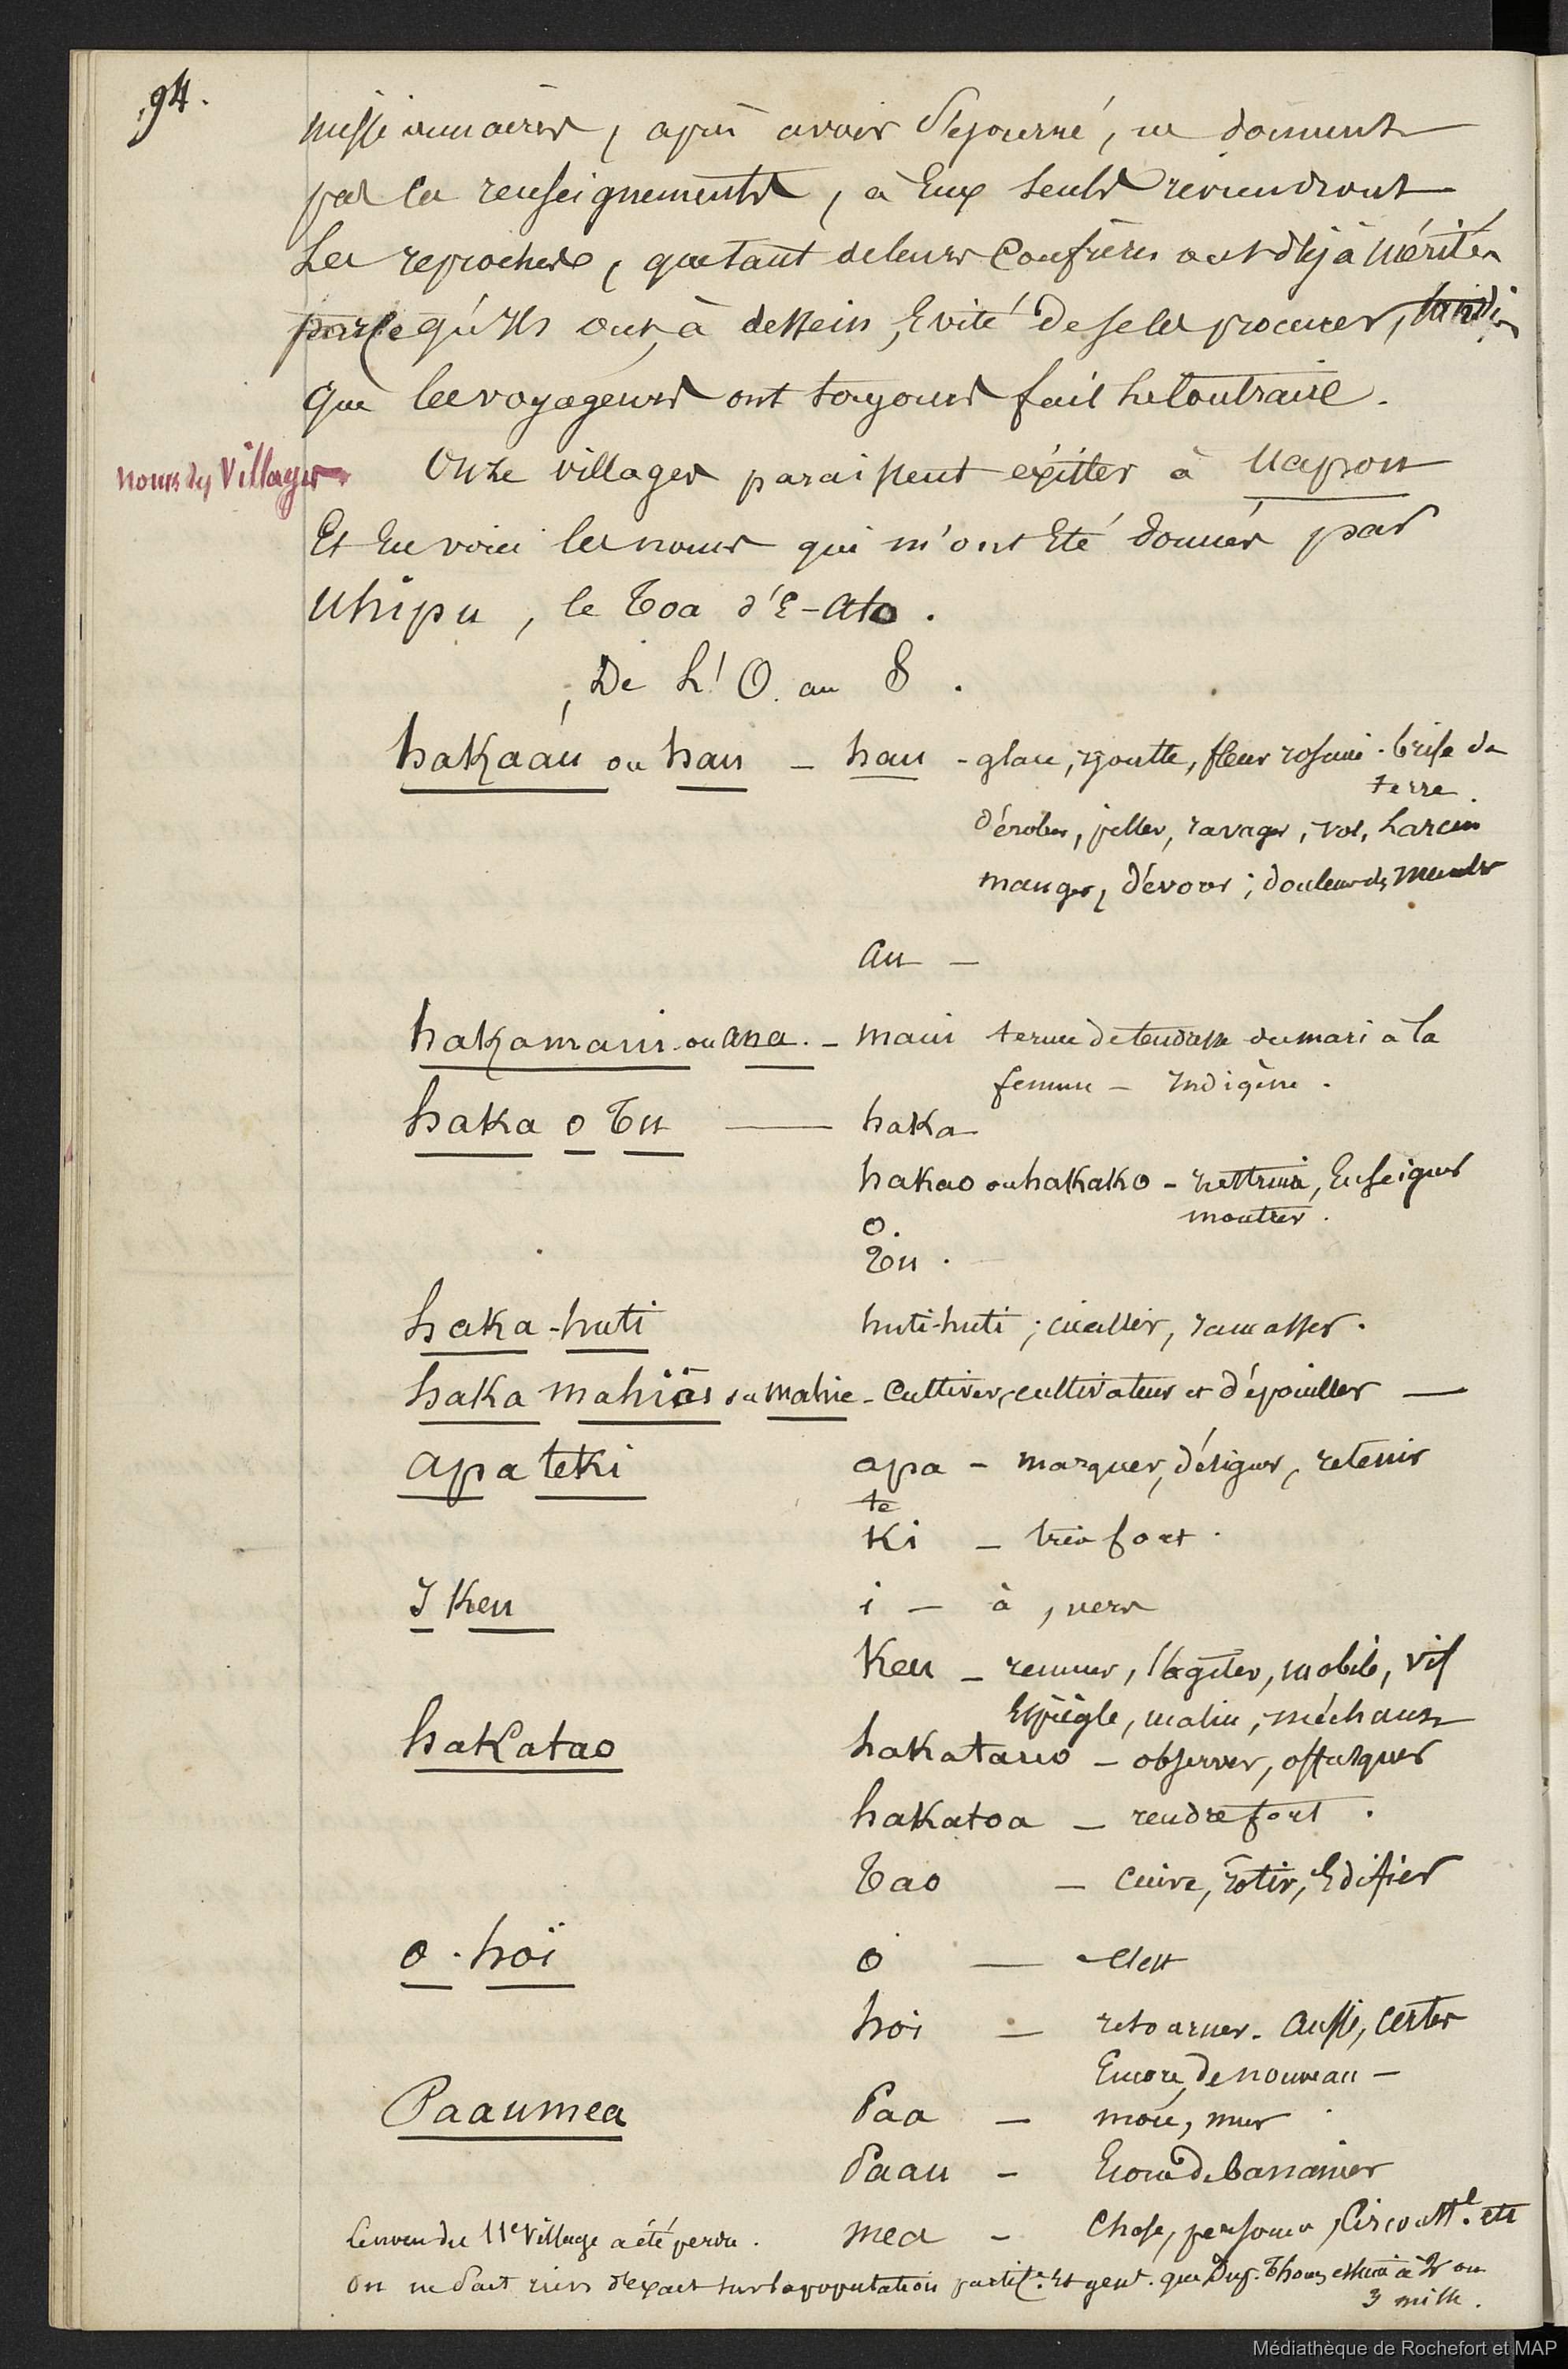 94.
missionnaires, après avoir séjourné, ne donnent
pas ces renseignements, à Eux seuls reviendront
Les reproches, que tant de leurs Confrères ont déjà mérités
parce qu'ils ont, à dessein, Evité de se les procurer, tandis
que les voyageurs ont toujours fait le Contraire.
noms des Villages
Onze villages paraissent exister à Uapou
Et En voici les noms qui m'ont Eté donnés par
Uhipu, le Toa d'E-Ato.
De L'O. au S.
hakaáu ou hau – hau - glace, égoutte, fleur rosacée. brise de
terre.
dérober, piller, ravager, vol, Larcin
manger, dévorer; douleur des membres
au –
hakamaui ou ana. – maui terme de tendresse du mari à la
femme – Indigène.
haka o Tu — haka
hakao ou hakako – instruire, Enseigner
montrer.
o.
Tu.
haka-huti huti-huti; cueillir, ramasser.
haka mahiäs ou mahie - Cultiver, cultivateur et dépouiller —
apa teki apa – marquer, désigner, retenir
te
Ki – très fort.
I Keu i – à, vers
Keu – remuer, s'agiter, mobile, vif
Espiègle, malin, méchant
hakatao hakatauo – observer, offusquer
hakatoa – rendre fort.
Tao – Cuire, rôtir, Edifier
o. hoï o — C'est
hoi — retourner. Aussi, Certes
Encore, de nouveau –
Paaumea Paa – moü, mur
Paau – Ecorce de bananier
mea – Chose, personne, Circonst.e etc
Le nom du 11e Village a été perdu.
On ne sait rien d'exact sur la population partic.e Et gené. que Dup. Thouars estime à 2 ou
3 mille.
Médiathèque de Rochefort et MAP